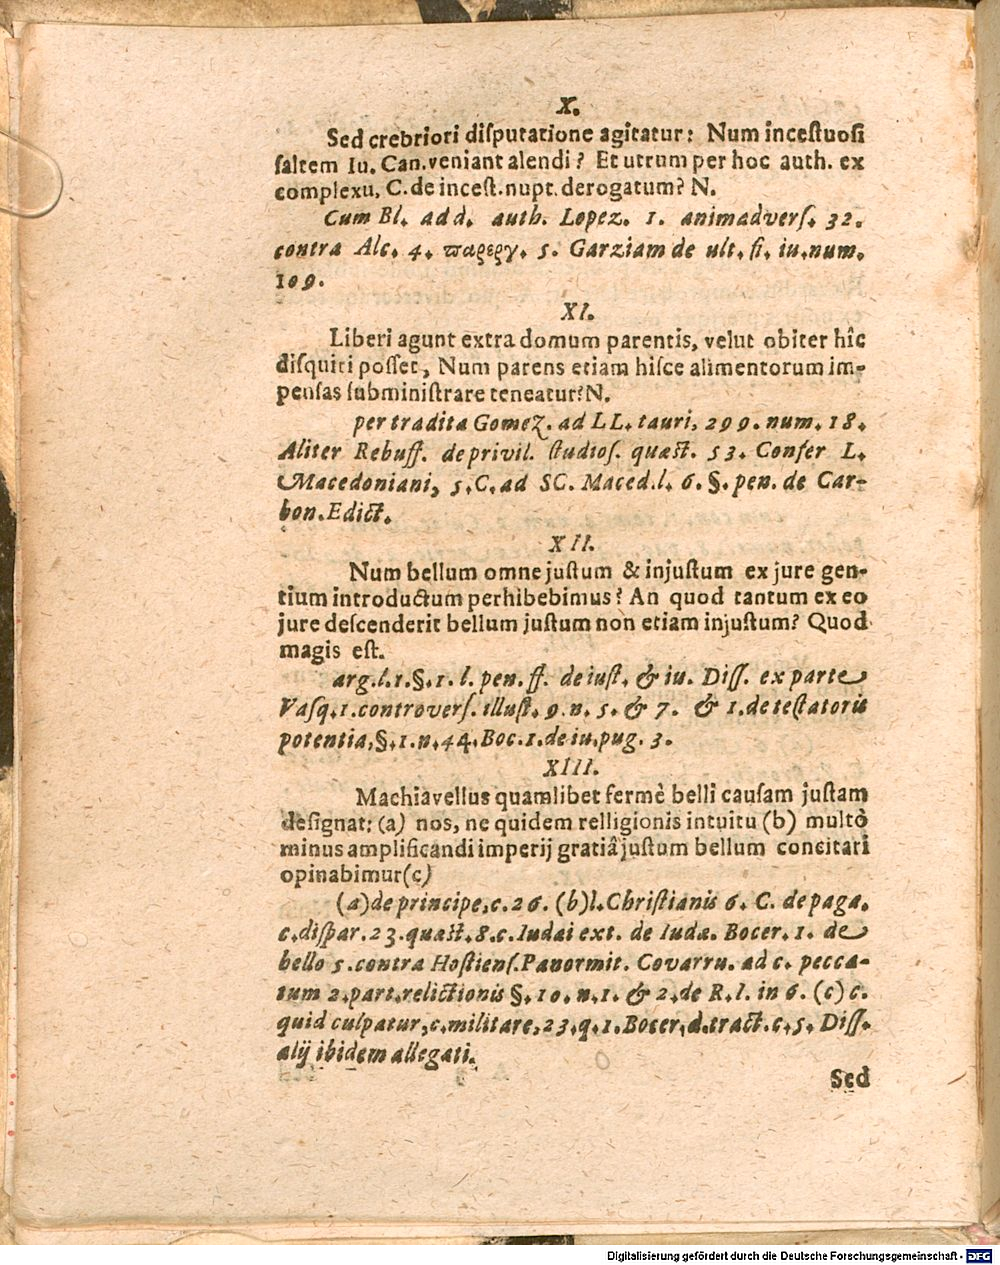 X.
Sed crebriori diſputatione agitatur: Num inceſtuoſi
ſaltem Iu. Can. veniant alendi? Et utrum per hoc auth. ex
complexu, C. de inceſt. nupt. derogatum? N.
Cum Bl. ad d. auth. Lopez. 1. animadverſ. 32.
contra Alc. 4. παρεργ. 5. Garziam de ult. fi. iu. num.
109.
XI.
Liberi agunt extra domum parentis, velut obiter hîc
diſquiri poſſet, Num parens etiam hiſce alimentorum im-
penſas ſubminiſtrare teneatur? N.
per tradita Gomez. ad LL. tauri, 299. num. 18.
Aliter Rebuff. de privil. ſtudioſ. quæst. 53. Confer L.
Macedoniani, 5. C. ad SC. Maced. l. 6. §. pen. de Car-
bon. Edict.
XII.
Num bellum omne juſtum & injuſtum ex jure gen-
tium introductum perhibebimus? An quod tantum ex eo
jure deſcenderit bellum juſtum non etiam injuſtum? Quod
magis eſt.
arg. l. 1. §. 1. l. pen. ff. de iuſt. & iu. Diſſ. ex parte
Vaſq. 1. controverſ. illuſt. 9. n. 5. & 7. & 1. de teſtatoris
potentia, §. 1. n. 44. Boc. 1. de iu. pug. 3.
XIII.
Machiavellus quamlibet fermè belli cauſam juſtam
deſignat: (a) nos, ne quidem relligionis intuitu (b) multò
minus amplificandi imperij gratiâ juſtum bellum concitari
opinabimur (c)
(a) de principe, c. 26. (b) l. Chriſtianis 6. C. de paga.
c. diſpar. 23. quæst. 8. c. Iudæi ext. de Iudæ. Bocer. 1. de
bello 5. contra Hoſtienſ. Panormit. Covarru. ad c. pecca-
tum 2. part. relictionis §. 10. n. 1. & 2. de R. I. in 6. (c) c.
quid culpatur, c. militare, 23. q. 1. Bocer, d. tract. c. 5. Diſſ.
alij ibidem allegati.
Sed
Digitalisierung gefördert durch die Deutsche Forschungsgemeinschaft - DFG